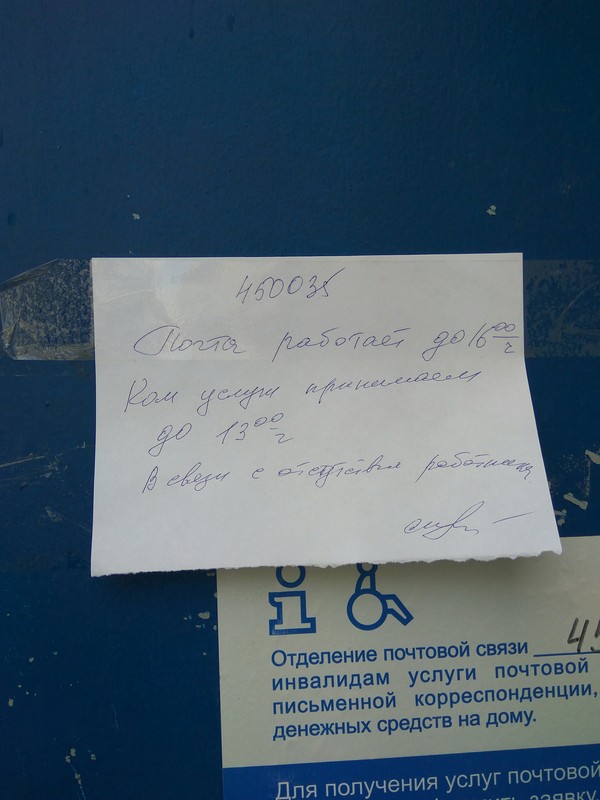 450035
Почта работает до 16 00 ч
Ком услуги принимаем
до 13 00 ч
В связи с отсутствия работника
Отделение почтовой связи 45
инвалидам услуги почтовой
письменной корреспонденции,
денежных средств на дому.
Для получения услуг почтовой
заявку